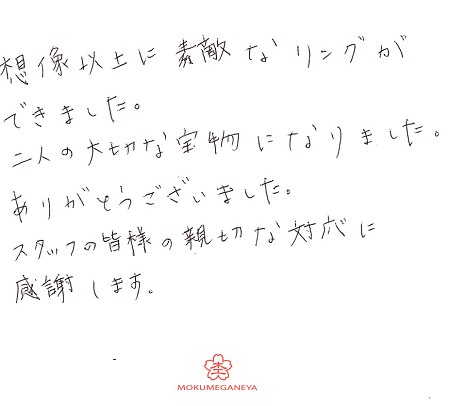 想像以上に素敵なリングが
できました。
二人の大切な宝物になりました。
ありがとうございました。
スタッフの皆様の親切な対応に
感謝します。
MOKUMEGANEYA